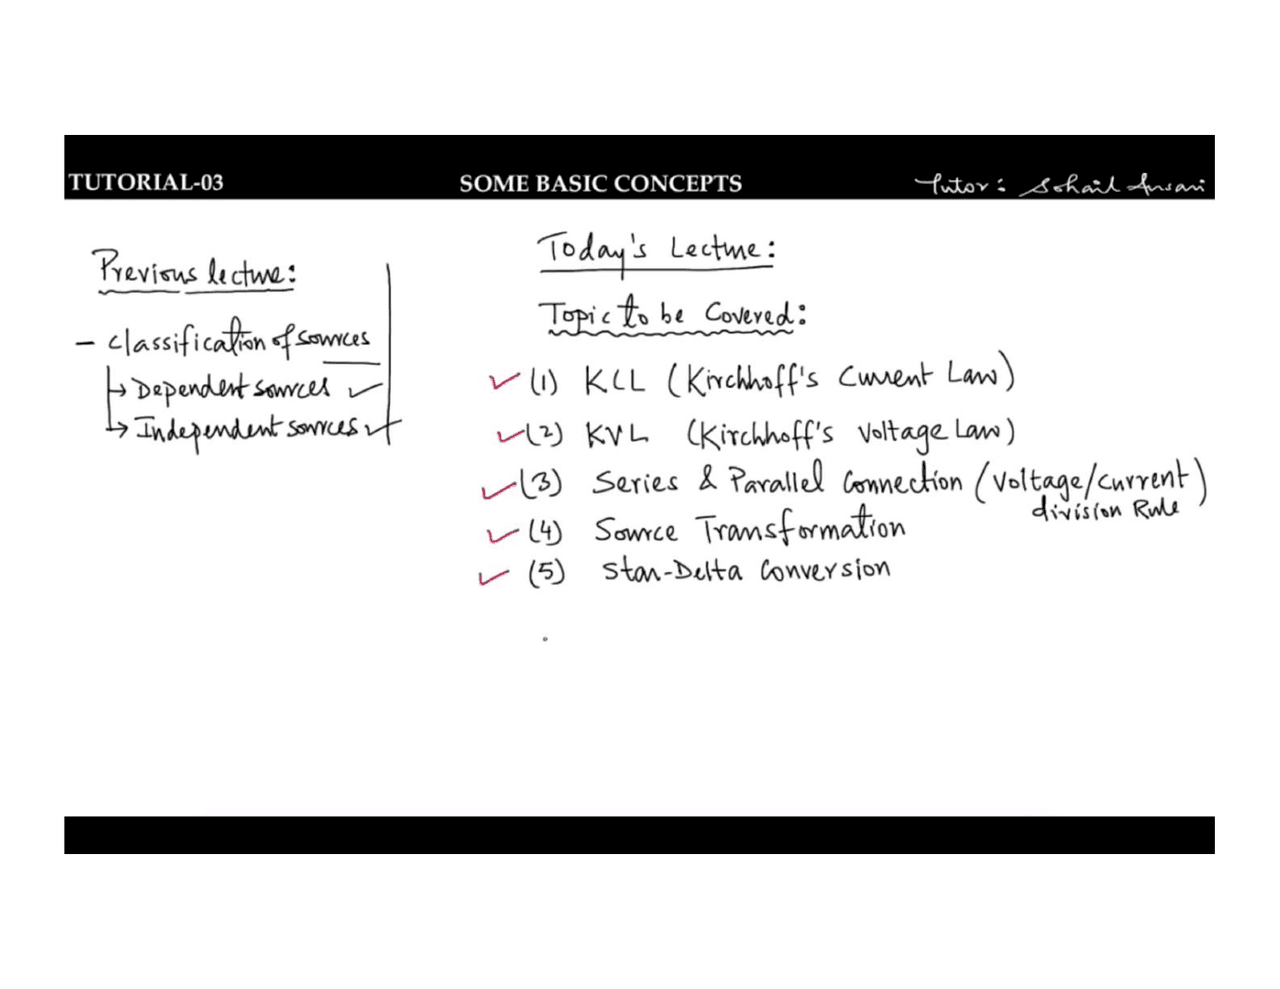 TUTORIAL-03 SOME BASIC CONCEPTS Tutor: Sohail Ansari
Previous lecture:
- Classification of sources
↳ Dependent sources ✓
↳ Independent sources ✓
Today's Lecture:
Topic to be Covered:
✓ (1) KCL (Kirchhoff's Current Law)
✓ (2) KVL (Kirchhoff's Voltage Law)
✓ (3) Series & Parallel Connection (Voltage/Current)
division Rule
✓ (4) Source Transformation
✓ (5) Star-Delta Conversion